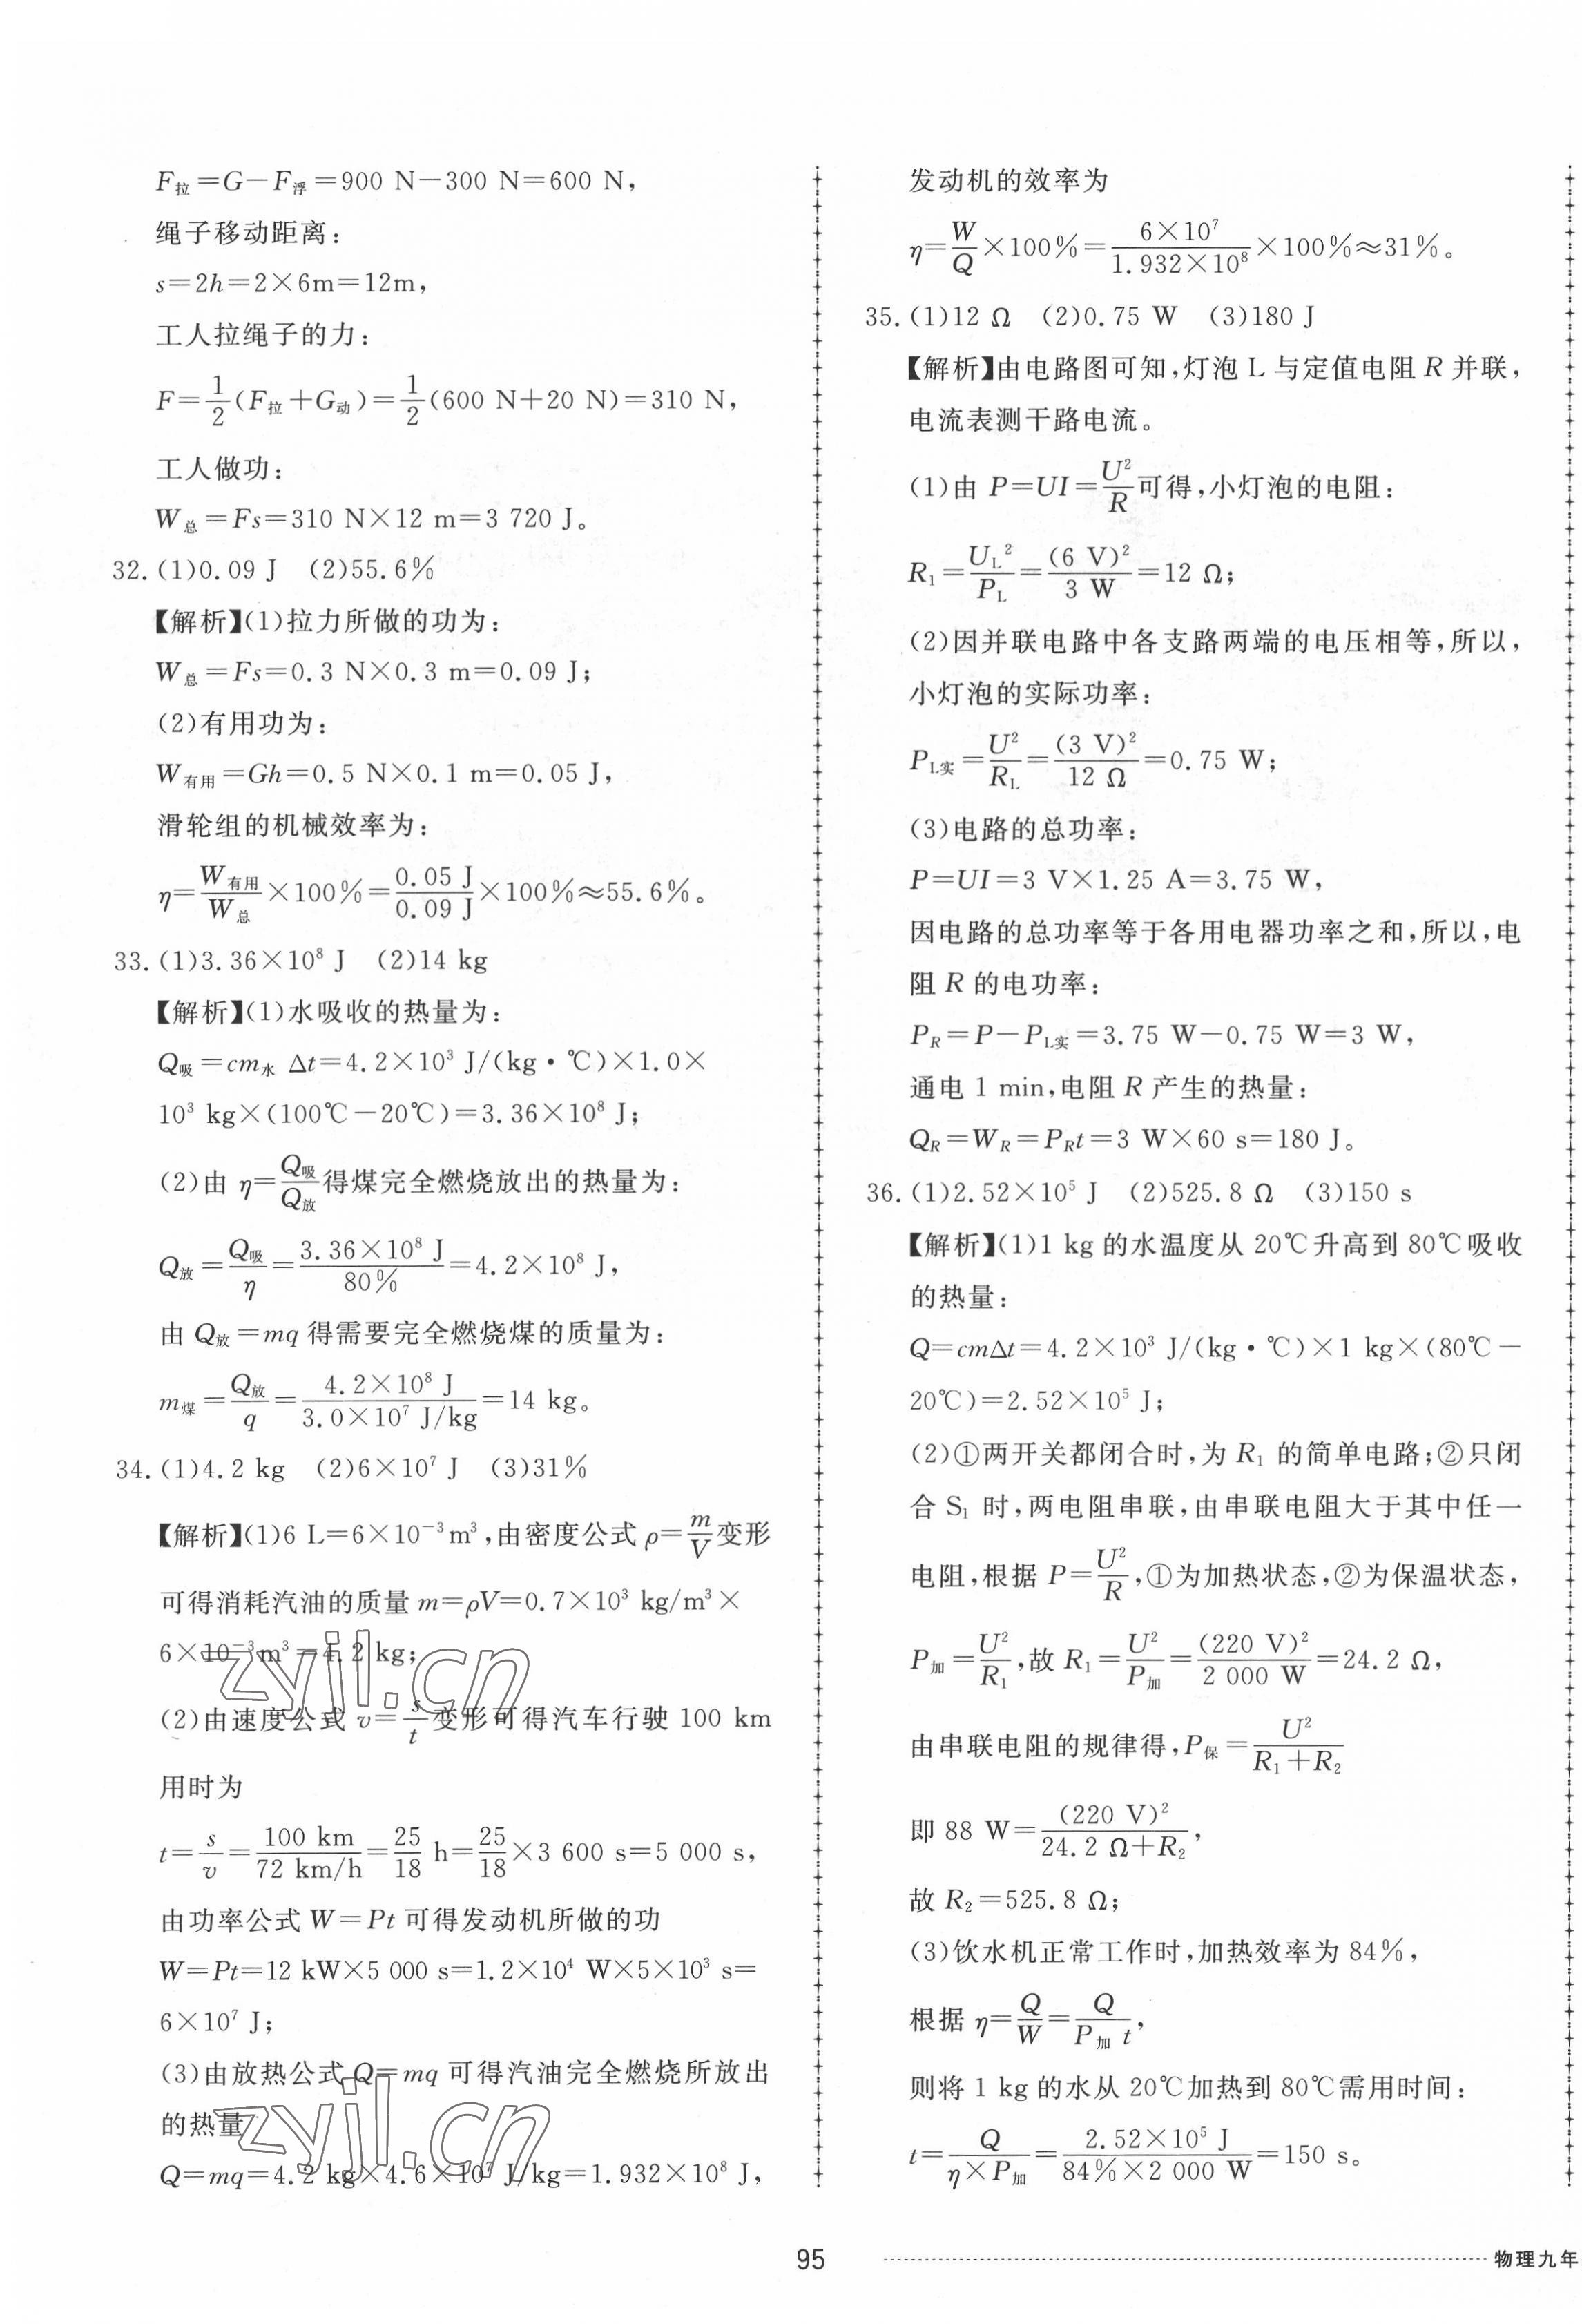 F拉＝G－F浮＝900 N－300 N＝600 N，
绳子移动距离：
s＝2h＝2×6m＝12m，
工人拉绳子的力：
F＝1/2(F拉＋G动)＝1/2(600 N＋20 N)＝310 N，
工人做功：
W总＝Fs＝310 N×12 m＝3 720 J。
32.(1)0.09 J　(2)55.6％
【解析】(1)拉力所做的功为：
W总＝Fs＝0.3 N×0.3 m＝0.09 J；
(2)有用功为：
W有用＝Gh＝0.5 N×0.1 m＝0.05 J，
滑轮组的机械效率为：
η＝W有用/W总×100％＝0.05 J/0.09 J×100％≈55.6％。
33.(1)3.36×10⁸ J　(2)14 kg
【解析】(1)水吸收的热量为：
Q吸＝cm水 Δt＝4.2×10³ J/(kg·℃)×1.0×
10³ kg×(100℃－20℃)＝3.36×10⁸ J；
(2)由 η＝Q吸/Q放得煤完全燃烧放出的热量为：
Q放＝Q吸/η＝3.36×10⁸ J/80％＝4.2×10⁸ J，
由 Q放＝mq 得需要完全燃烧煤的质量为：
m煤＝Q放/q＝4.2×10⁸ J/3.0×10⁷ J/kg＝14 kg。
34.(1)4.2 kg　(2)6×10⁷ J　(3)31％
【解析】(1)6 L＝6×10⁻³m³，由密度公式 ρ＝m/V变形
可得消耗汽油的质量 m＝ρV＝0.7×10³ kg/m³×
6×10⁻³m³＝4.2 kg；
(2)由速度公式 v＝s/t变形可得汽车行驶 100 km
用时为
t＝s/v＝100 km/72 km/h＝25/18 h＝25/18×3 600 s＝5 000 s，
由功率公式 W＝Pt 可得发动机所做的功
W＝Pt＝12 kW×5 000 s＝1.2×10⁴ W×5×10³ s＝
6×10⁷ J；
(3)由放热公式 Q＝mq 可得汽油完全燃烧所放出
的热量
Q＝mq＝4.2 kg×4.6×10⁷ J/kg＝1.932×10⁸ J，
发动机的效率为
η＝W/Q×100％＝6×10⁷/1.932×10⁸×100％≈31％。
35.(1)12 Ω　(2)0.75 W　(3)180 J
【解析】由电路图可知，灯泡 L 与定值电阻 R 并联，
电流表测干路电流。
(1)由 P＝UI＝U²/R可得，小灯泡的电阻：
R₁＝U_L²/P_L＝(6 V)²/3 W＝12 Ω；
(2)因并联电路中各支路两端的电压相等，所以，
小灯泡的实际功率：
P_L实＝U²/R_L＝(3 V)²/12 Ω＝0.75 W；
(3)电路的总功率：
P＝UI＝3 V×1.25 A＝3.75 W，
因电路的总功率等于各用电器功率之和，所以，电
阻 R 的电功率：
P_R＝P－P_L实＝3.75 W－0.75 W＝3 W，
通电 1 min，电阻 R 产生的热量：
Q_R＝W_R＝P_Rt＝3 W×60 s＝180 J。
36.(1)2.52×10⁵ J　(2)525.8 Ω　(3)150 s
【解析】(1)1 kg 的水温度从 20℃升高到 80℃吸收
的热量：
Q＝cmΔt＝4.2×10³ J/(kg·℃)×1 kg×(80℃－
20℃)＝2.52×10⁵ J；
(2)①两开关都闭合时，为 R₁ 的简单电路；②只闭
合 S₁ 时，两电阻串联，由串联电阻大于其中任一
电阻，根据 P＝U²/R，①为加热状态，②为保温状态，
P加＝U²/R₁，故 R₁＝U²/P加＝(220 V)²/2 000 W＝24.2 Ω，
由串联电阻的规律得，P保＝U²/R₁＋R₂
即 88 W＝(220 V)²/24.2 Ω＋R₂，
故 R₂＝525.8 Ω；
(3)饮水机正常工作时，加热效率为 84％，
根据 η＝Q/W＝Q/P加 t，
则将 1 kg 的水从 20℃加热到 80℃需用时间：
t＝Q/η×P加＝2.52×10⁵ J/84％×2 000 W＝150 s。
zyjl.cn
zyjl.cn
95
物理九年